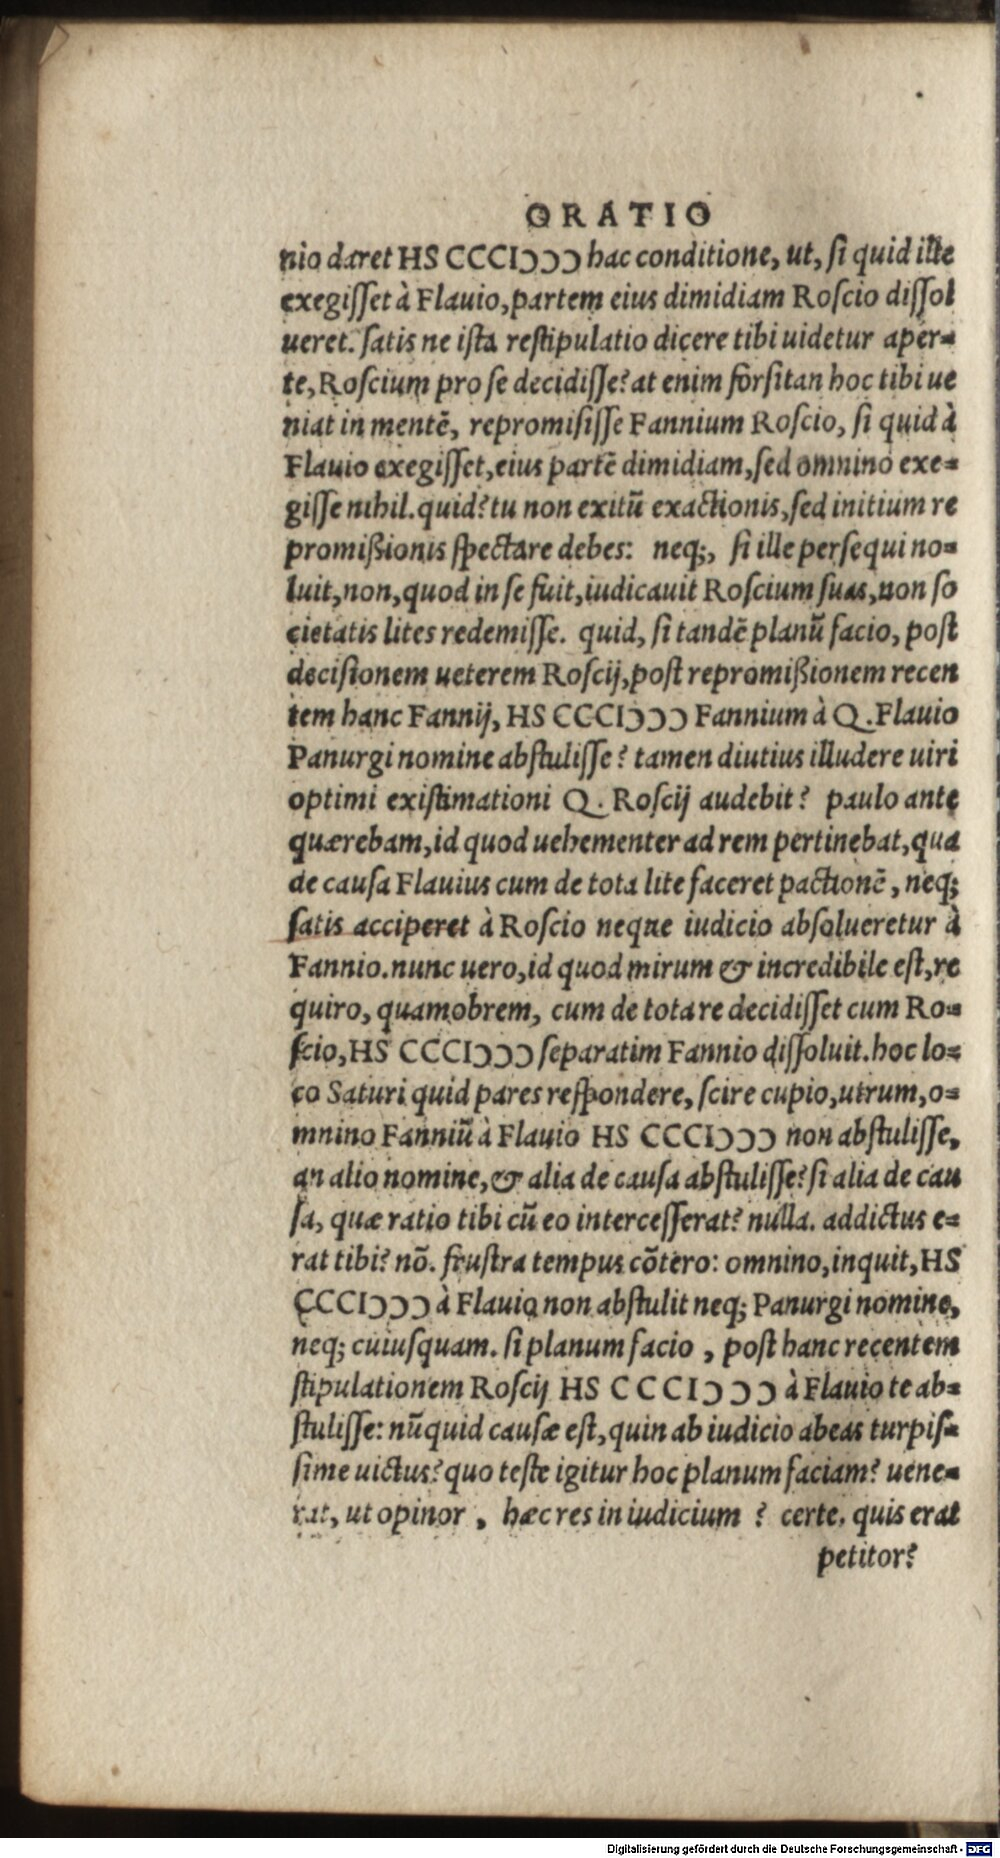 ORATIO
nio daret HS CCCIↃↃↃ hac conditione, ut, ſi quid ille
exegiſſet à Flauio, partem eius dimidiam Roſcio diſſol
ueret. ſatis ne iſta reſtipulatio dicere tibi uidetur aper=
te, Roſcium pro ſe decidiſſe? at enim forſitan hoc tibi ue
niat in mentẽ, repromiſiſſe Fannium Roſcio, ſi quid à
Flauio exegiſſet, eius partẽ dimidiam, ſed omnino exe=
giſſe nihil. quid? tu non exitũ exactionis, ſed initium re
promißionis ſpectare debes: neq;, ſi ille perſequi no=
luit, non, quod in ſe fuit, iudicauit Roſcium ſuas, non ſo
cietatis lites redemiſſe. quid, ſi tandẽ planũ facio, poſt
deciſionem ueterem Roſcij, poſt repromißionem recen
tem hanc Fannij, HS CCCIↃↃↃ Fannium à Q. Flauio
Panurgi nomine abſtuliſſe? tamen diutius illudere uiri
optimi exiſtimationi Q. Roſcij audebit? paulo ante
quærebam, id quod uehementer ad rem pertinebat, qua
de cauſa Flauius cum de tota lite faceret pactionẽ, neq;
ſatis acciperet à Roſcio neque iudicio abſolueretur à
Fannio. nunc uero, id quod mirum & incredibile eſt, re
quiro, quamobrem, cum de tota re decidiſſet cum Ro=
ſcio, HS CCCIↃↃↃ ſeparatim Fannio diſſoluit. hoc lo=
co Saturi quid pares reſpondere, ſcire cupio, utrum, o=
mnino Fanniũ à Flauio HS CCCIↃↃↃ non abſtuliſſe,
an alio nomine, & alia de cauſa abſtuliſſe? ſi alia de cau
ſa, quæ ratio tibi cũ eo interceſſerat? nulla. addictus e=
rat tibi? nõ. fruſtra tempus cõtero: omnino, inquit, HS
CCCIↃↃↃ à Flauio non abſtulit neq; Panurgi nomine,
neq; cuiuſquam. ſi planum facio, poſt hanc recentem
ſtipulationem Roſcij HS CCCIↃↃↃ à Flauio te ab=
ſtuliſſe: nũquid cauſæ eſt, quin ab iudicio abeas turpiſ=
ſime uictus? quo teſte igitur hoc planum faciam? uene=
rat, ut opinor, hæc res in iudicium? certe. quis erat
petitor?
Digitalisierung gefördert durch die Deutsche Forschungsgemeinschaft - DFG